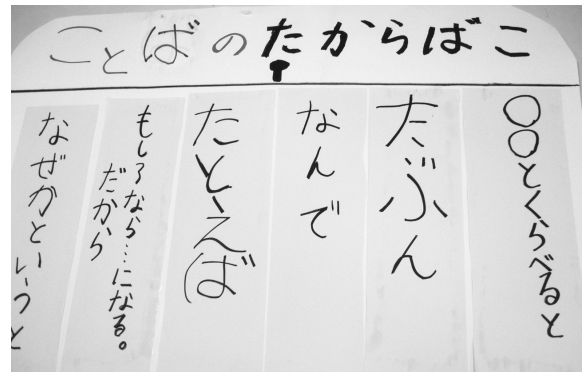 ことばのたからばこ
〇〇とくらべると
たぶん
なんで
たとえば
もし〜なら…になる。
だから
なぜかというと